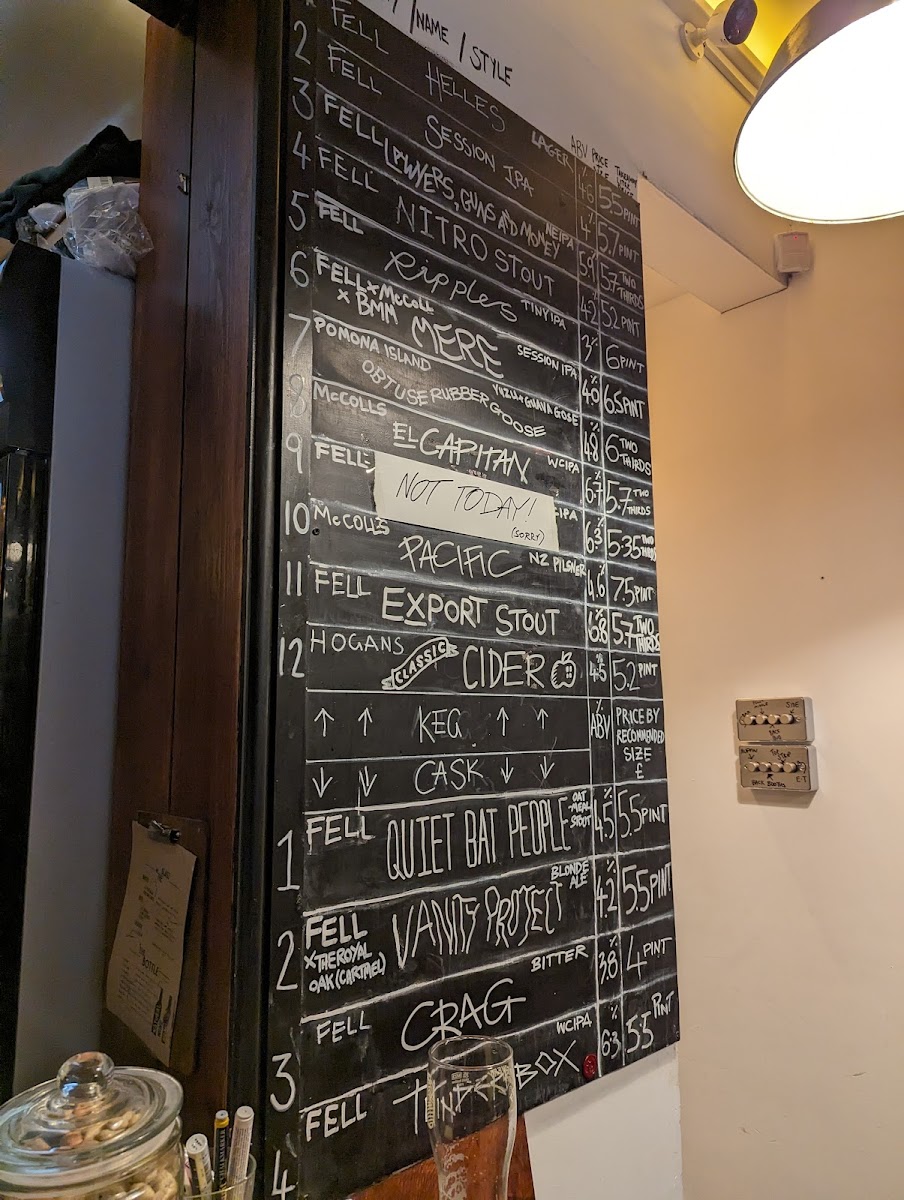 /NAME / STYLE
FELL
ABV PRICE
2 FELL HELLES LAGER 4.6% 5.5 PINT
3 FELL SESSION IPA 4% 5.7 PINT
4 FELL LAWYERS, GUNS AND MONEY NEIPA 5.9 5.7 TWO THIRDS
5 FELL NITRO STOUT 4.2 5.2 PINT
6 FELL Ripples TINY IPA 3% 6 PINT
7 FELL x McColl x BMM MERE SESSION IPA 4.0% 6.5 PINT
8 POMONA ISLAND OBTUSE RUBBER GOOSE YUZU + GUAVA GOSE 4.8% 6 TWO THIRDS
9 McCOLLS EL CAPITAN WCIPA 6.7% 5.7 TWO THIRDS
10 FELL NOT TODAY! (SORRY) IPA 6.3% 5.35 TWO THIRDS
11 McCOLLS PACIFIC NZ PILSNER 4.6% 7.5 PINT
12 FELL EXPORT STOUT 6.8% 5.7 TWO THIRDS
HOGANS CLASSIC CIDER 4.5% 5.2 PINT
↑ ↑ KEG ↑ ↑ ABV PRICE BY RECOMMENDED SIZE £
↓ ↓ CASK ↓ ↓
1 FELL QUIET BAT PEOPLE OATMEAL STOUT 4.5% 5.5 PINT
2 FELL x THE ROYAL OAK (CARTMEL) VANITY PROJECT BLONDE ALE 4.2% 5.5 PINT
3 FELL CRAG BITTER 3.8% 4 PINT
4 FELL TINDERBOX WCIPA 6.3% 5.5 PINT